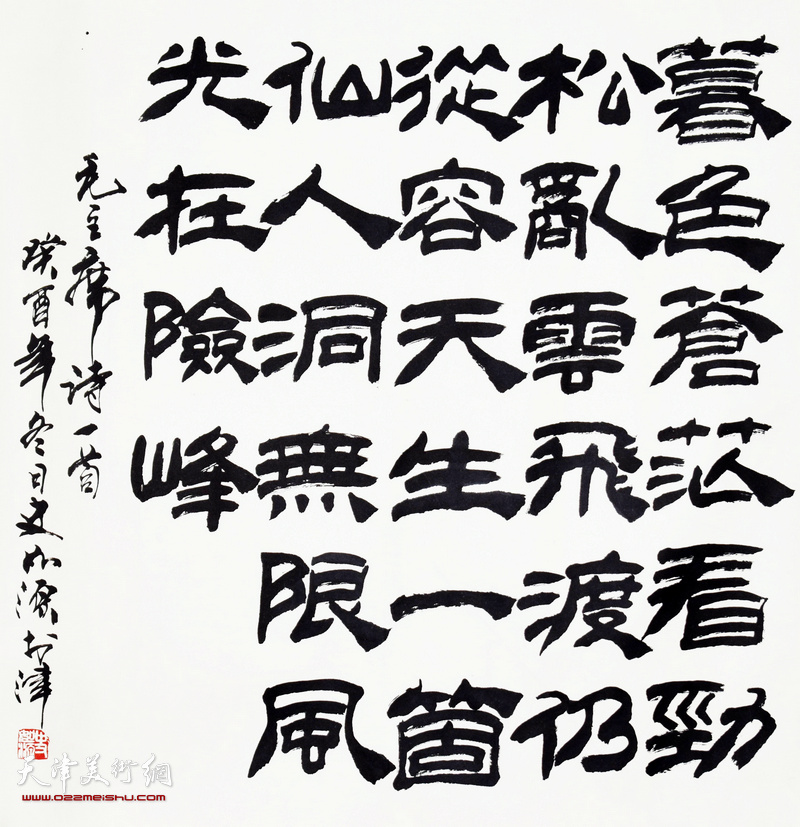 暮色蒼茫看勁
松亂雲飛渡仍
從容天生一箇
仙人洞無限風
光在險峰
毛主席诗一首
癸酉年冬日史如源於津
天津美術網
www.022meishu.com